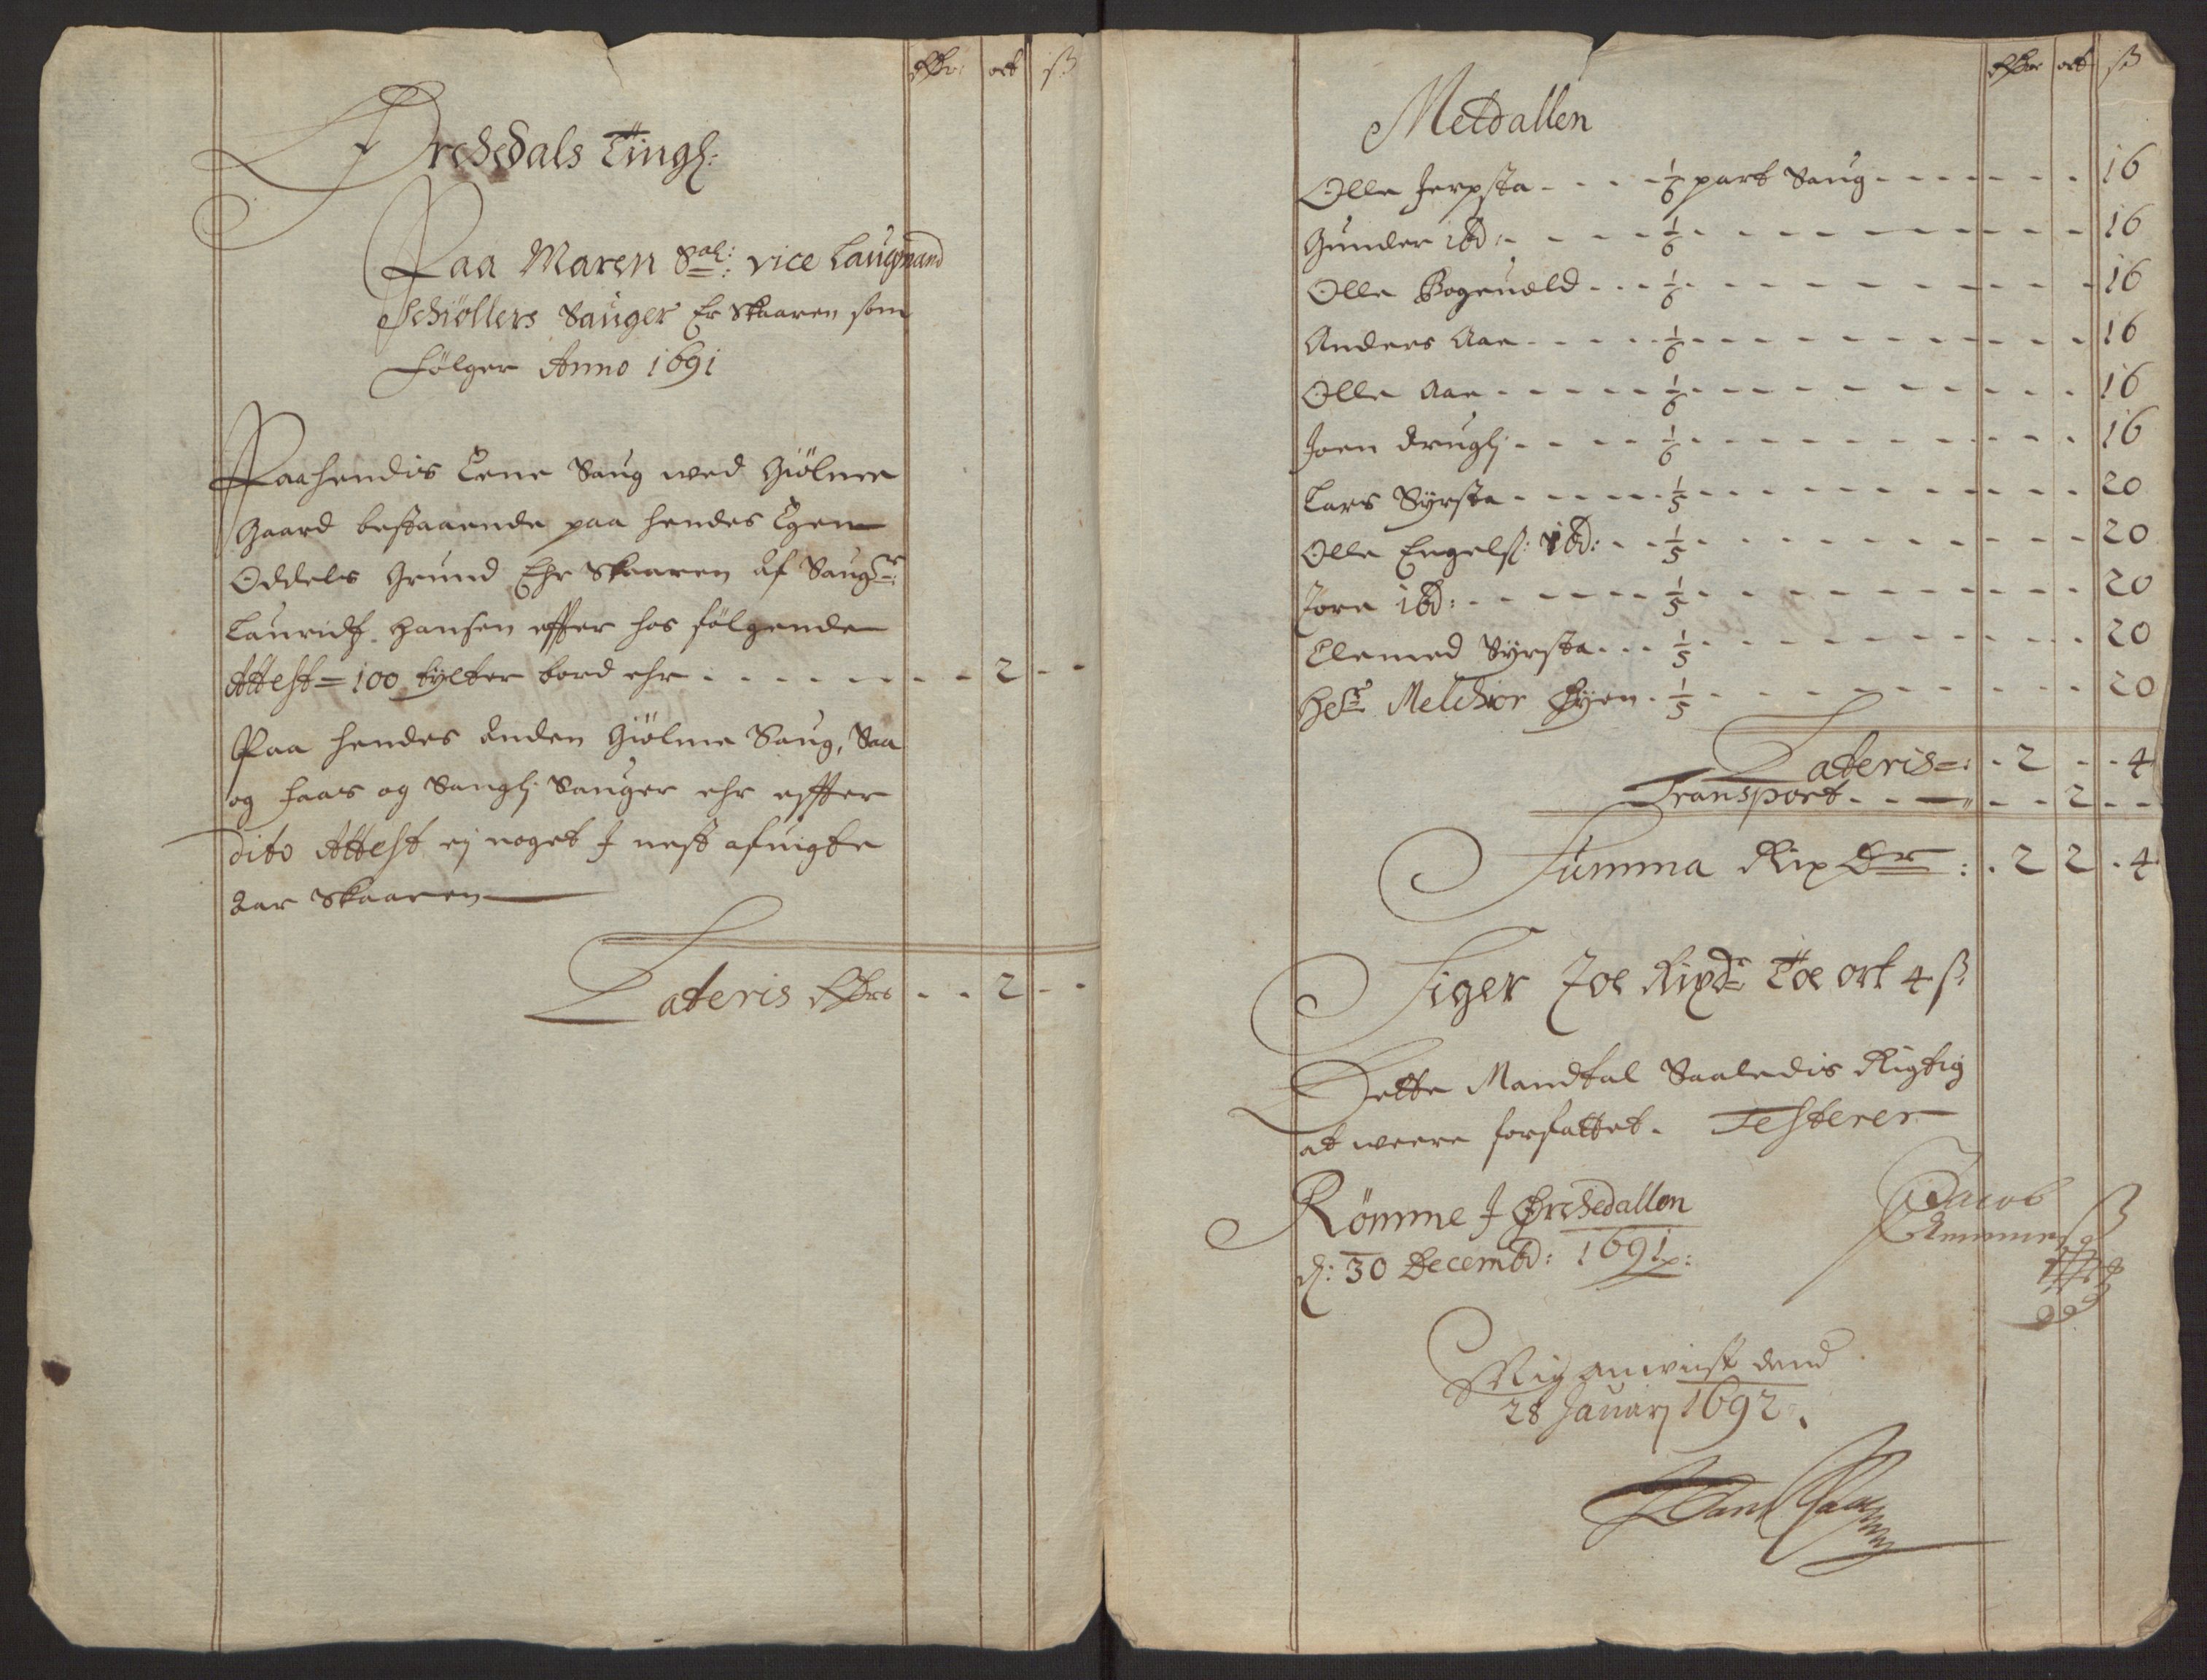 Rdr ort ß
Orchedals Tingl:
Paa Maren Sal: vice Laugmand
Schiöllers Sauger Er Skaaren som
Fölger Anno 1691
Paa hendis Eene Saug wed Giölmee
Gaard bestaaende paa hendes Egen
Oddels Grund Ehr Skaaren af Saugr:
Lauridz Hansen effter hos fölgende
Attest = 100 tylter bord ehr - - - 2 - -
Paa hendes Anden Giölme Saug, Saa
og Faas og Sauglj Sauger ehr effter
dito Attest ej noget J nest afuigte
Aar Skaaren
Lateris Rdr - - 2 - -
Rdr ort ß
Meldallen
Olle Jerpsta - - - 1/6 part Saug - - - 16
Gunder ibd: - - - 1/6 - - - 16
Olle Bogeuold - - - 1/6 - - - 16
Anders Aae - - - 1/6 - - - 16
Olle Aae - - - 1/6 - - - 16
Joen Druglj - - - 1/6 - - - 16
Lars Syrsta - - - 1/5 - - - 20
Olle Engels: ibd: - - 1/5 - - - 20
Tore ibd: - - - 1/5 - - - 20
Clemed Syrsta - - - 1/5 - - - 20
Hr Melchior Øyen - 1/5 - - - 20
Lateris = : - 2 - - 4
Transport - - - - - 2 - -
Summa Rix Dr : - 2 2 - 4
Siger Toe Rixdr Toe ort 4 ß
Dette Mandtal Saaledis Rigtig
at weere forfattet. Testerer
Römme J Orchedallen
d: 30 Decembd: 1691
Jacob
Mig anwiist dend
28 Januarj 1692.